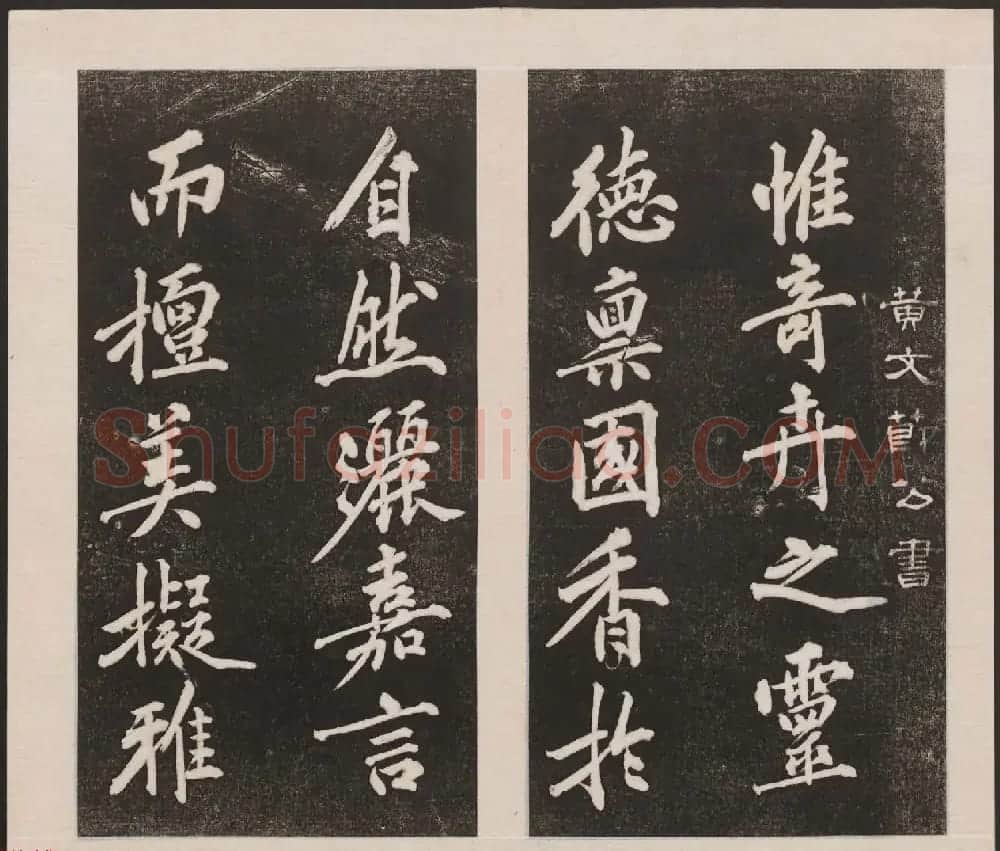 黄文節公書
惟奇卉之靈
德禀國香於
自然灑嘉言
而擅美擬雅
Shufaziliao.COM